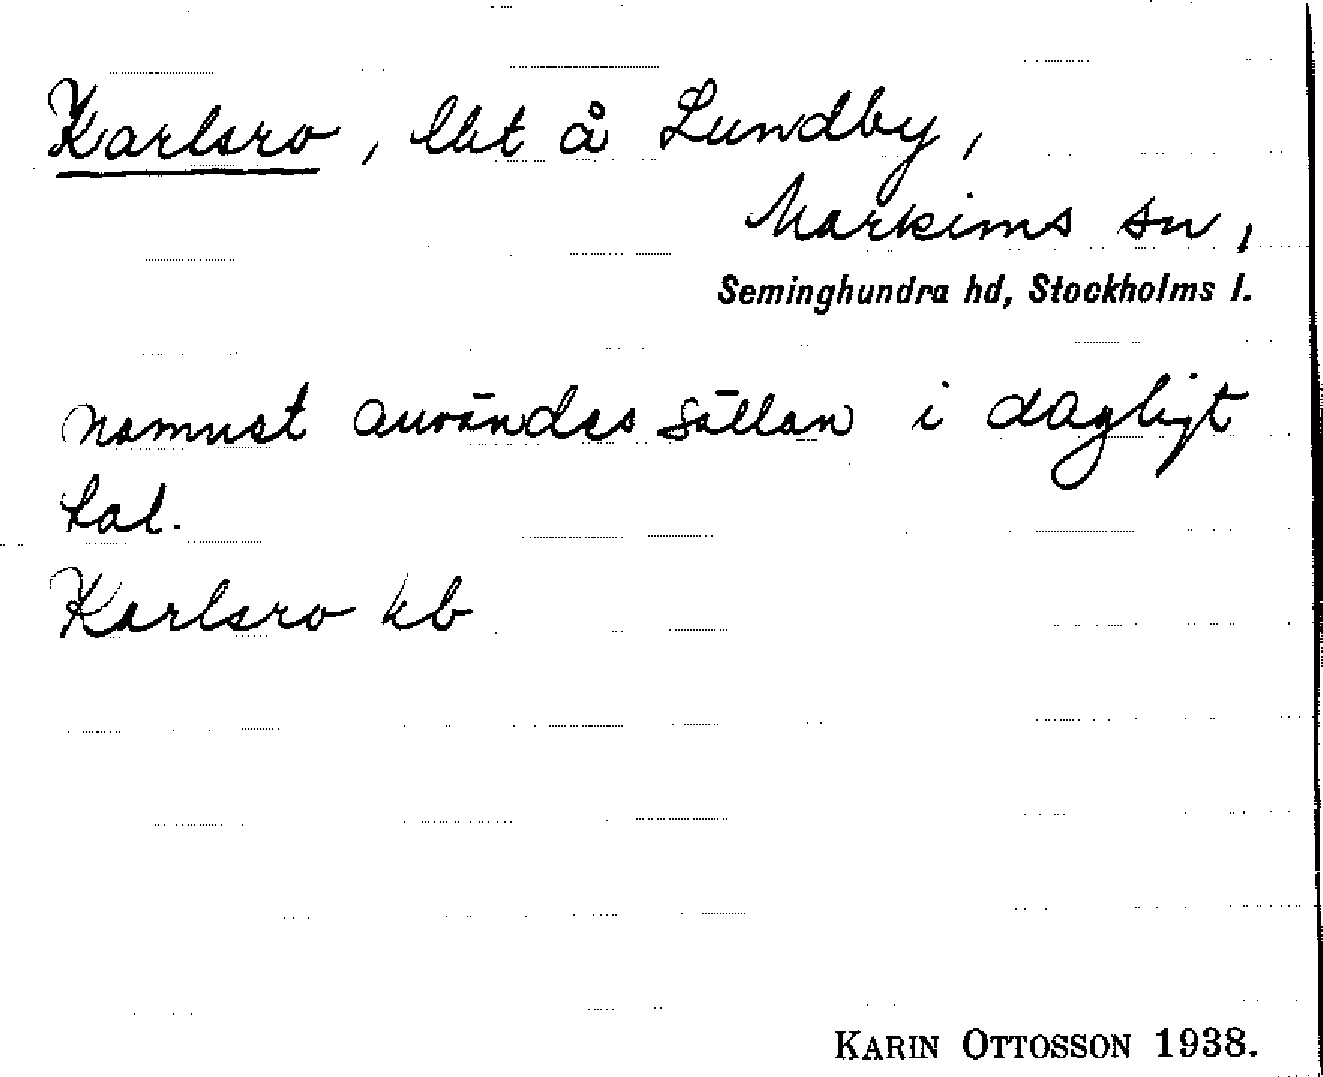 Karlsro, lht å Lundby,
Markims sn,
Seminghundra hd, Stockholms l.
namnet användes sällan i dagligt
tal.
Karlsro kb
KARIN OTTOSSON 1938.